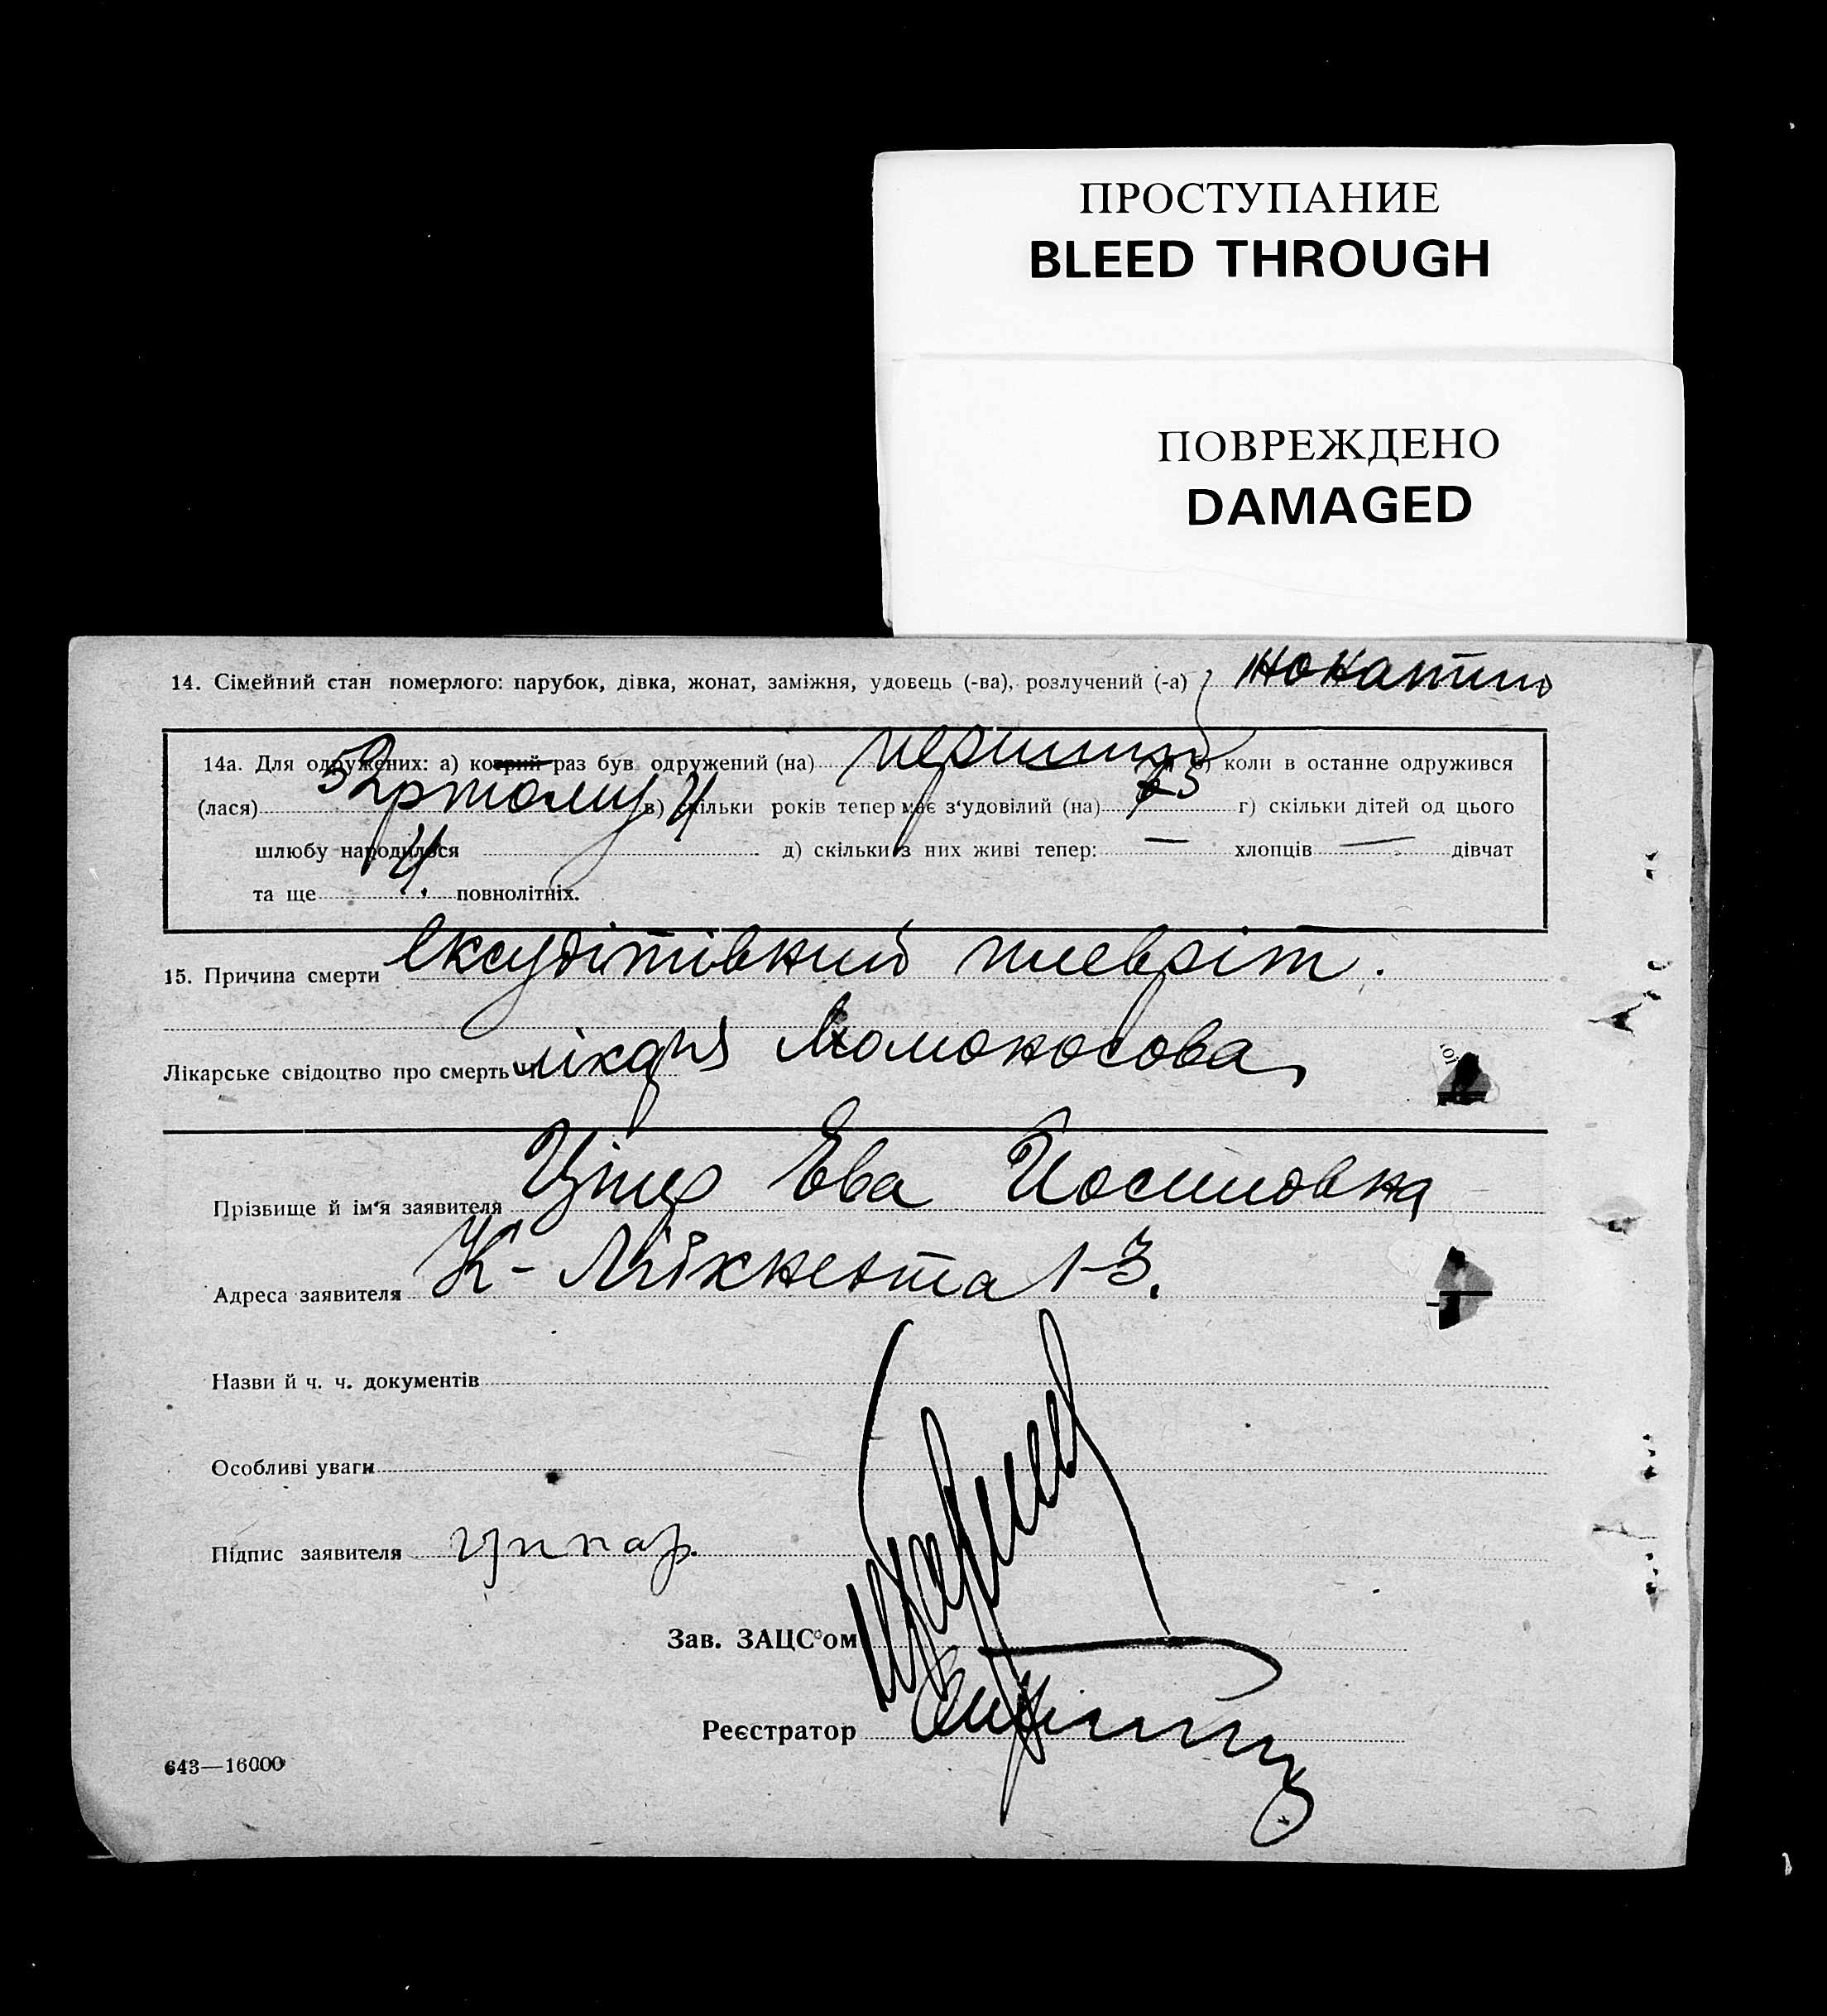 ПРОСТУПАНИЕ
BLEED THROUGH
ПОВРЕЖДЕНО
DAMAGED
14. Сімейний стан померлого: парубок, дівка, жонат, заміжня, удовець (-ва), розлучений (-а) жонатий
14а. Для одружених: а) котрий раз був одружений (на) перший б) коли в останне одружився
(лася) в) скільки років тепер має з'удовілий (на) г) скільки дітей од цього
шлюбу народилося 4 д) скільки з них живі тепер: — хлопців — дівчат
та ще 4. повнолітніх.
15. Причина смерти ексудітівний плевріт.
Лікарське свідоцтво про смерть лікаря Ломоносова
Прізвище й ім'я заявителя Ева Йосиповна
Адреса заявителя К- Лібкнехта 1-3.
Назви й ч. ч. документів
Особливі уваги
Підпис заявителя
Зав. ЗАЦС'ом
Реєстратор
643—16000